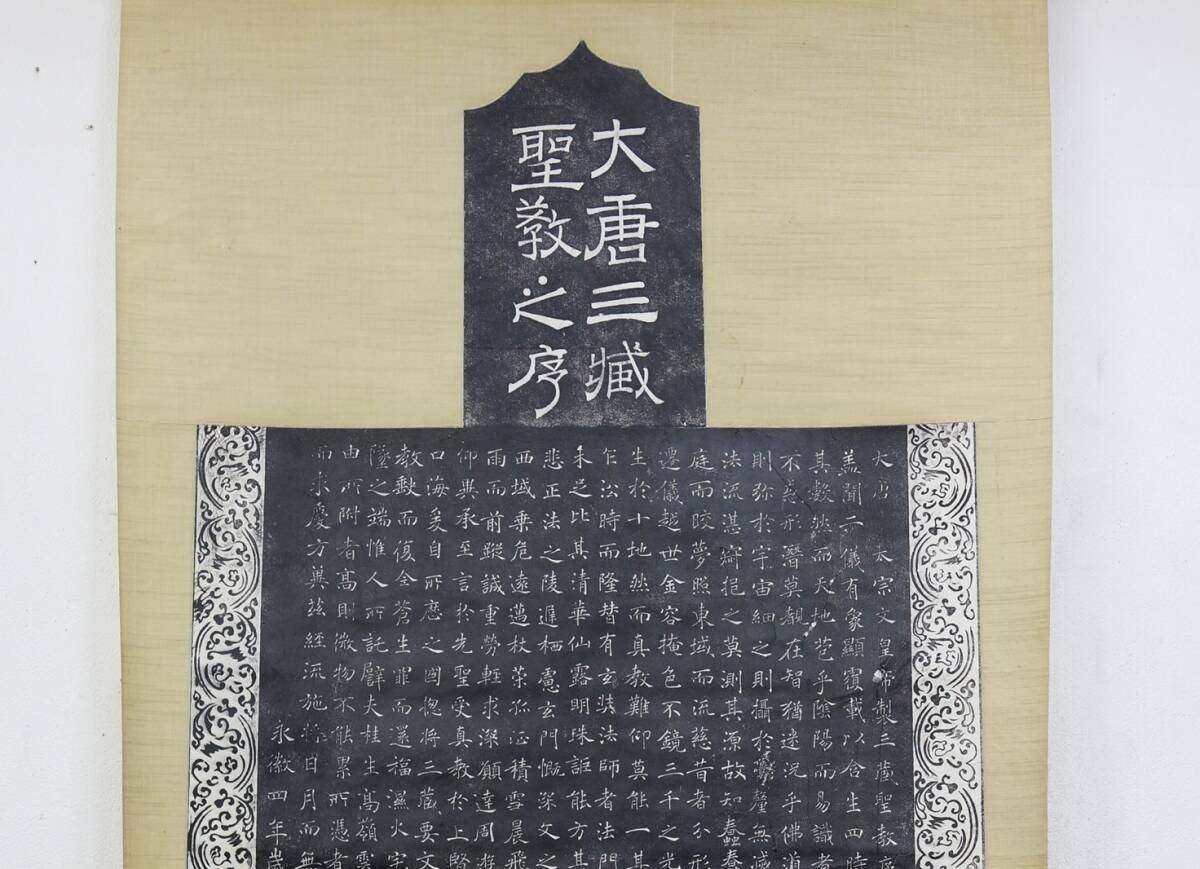 大唐三藏
聖教之序
大唐 太宗文皇帝製三藏聖教序
蓋聞二儀有象顯覆載以含生四時
其數然而天地苞乎陰陽而易識者
不惑形潛莫覩在智猶迷況乎佛道
則弥於宇宙細之則攝於豪釐無滅
法流湛寂挹之莫測其源故知蠢蠢
庭而皎夢照東域而流慈昔者分形
遷儀越世金容掩色不鏡三千之光
生於十地然而真教難仰莫能一其
乍沿時而隆替有玄奘法師者法門
未足比其清華仙露明珠詎能方其
悲正法之陵遲栖慮玄門慨深文之
西域乗危遠邁杖策孤征積雪晨飛
雨而前蹤誠重勞輕求深願達周遊
仰奧承至言於先聖受真教於上賢
口海爰自所歷之國揔將三藏要文
教缺而復全蒼生罪而還福濕火宅
墜之端惟人所託譬夫桂生高嶺雲
由所附者高則微物不能累所憑者
而求慶方冀茲經流施將日月而無
永徽四年歲